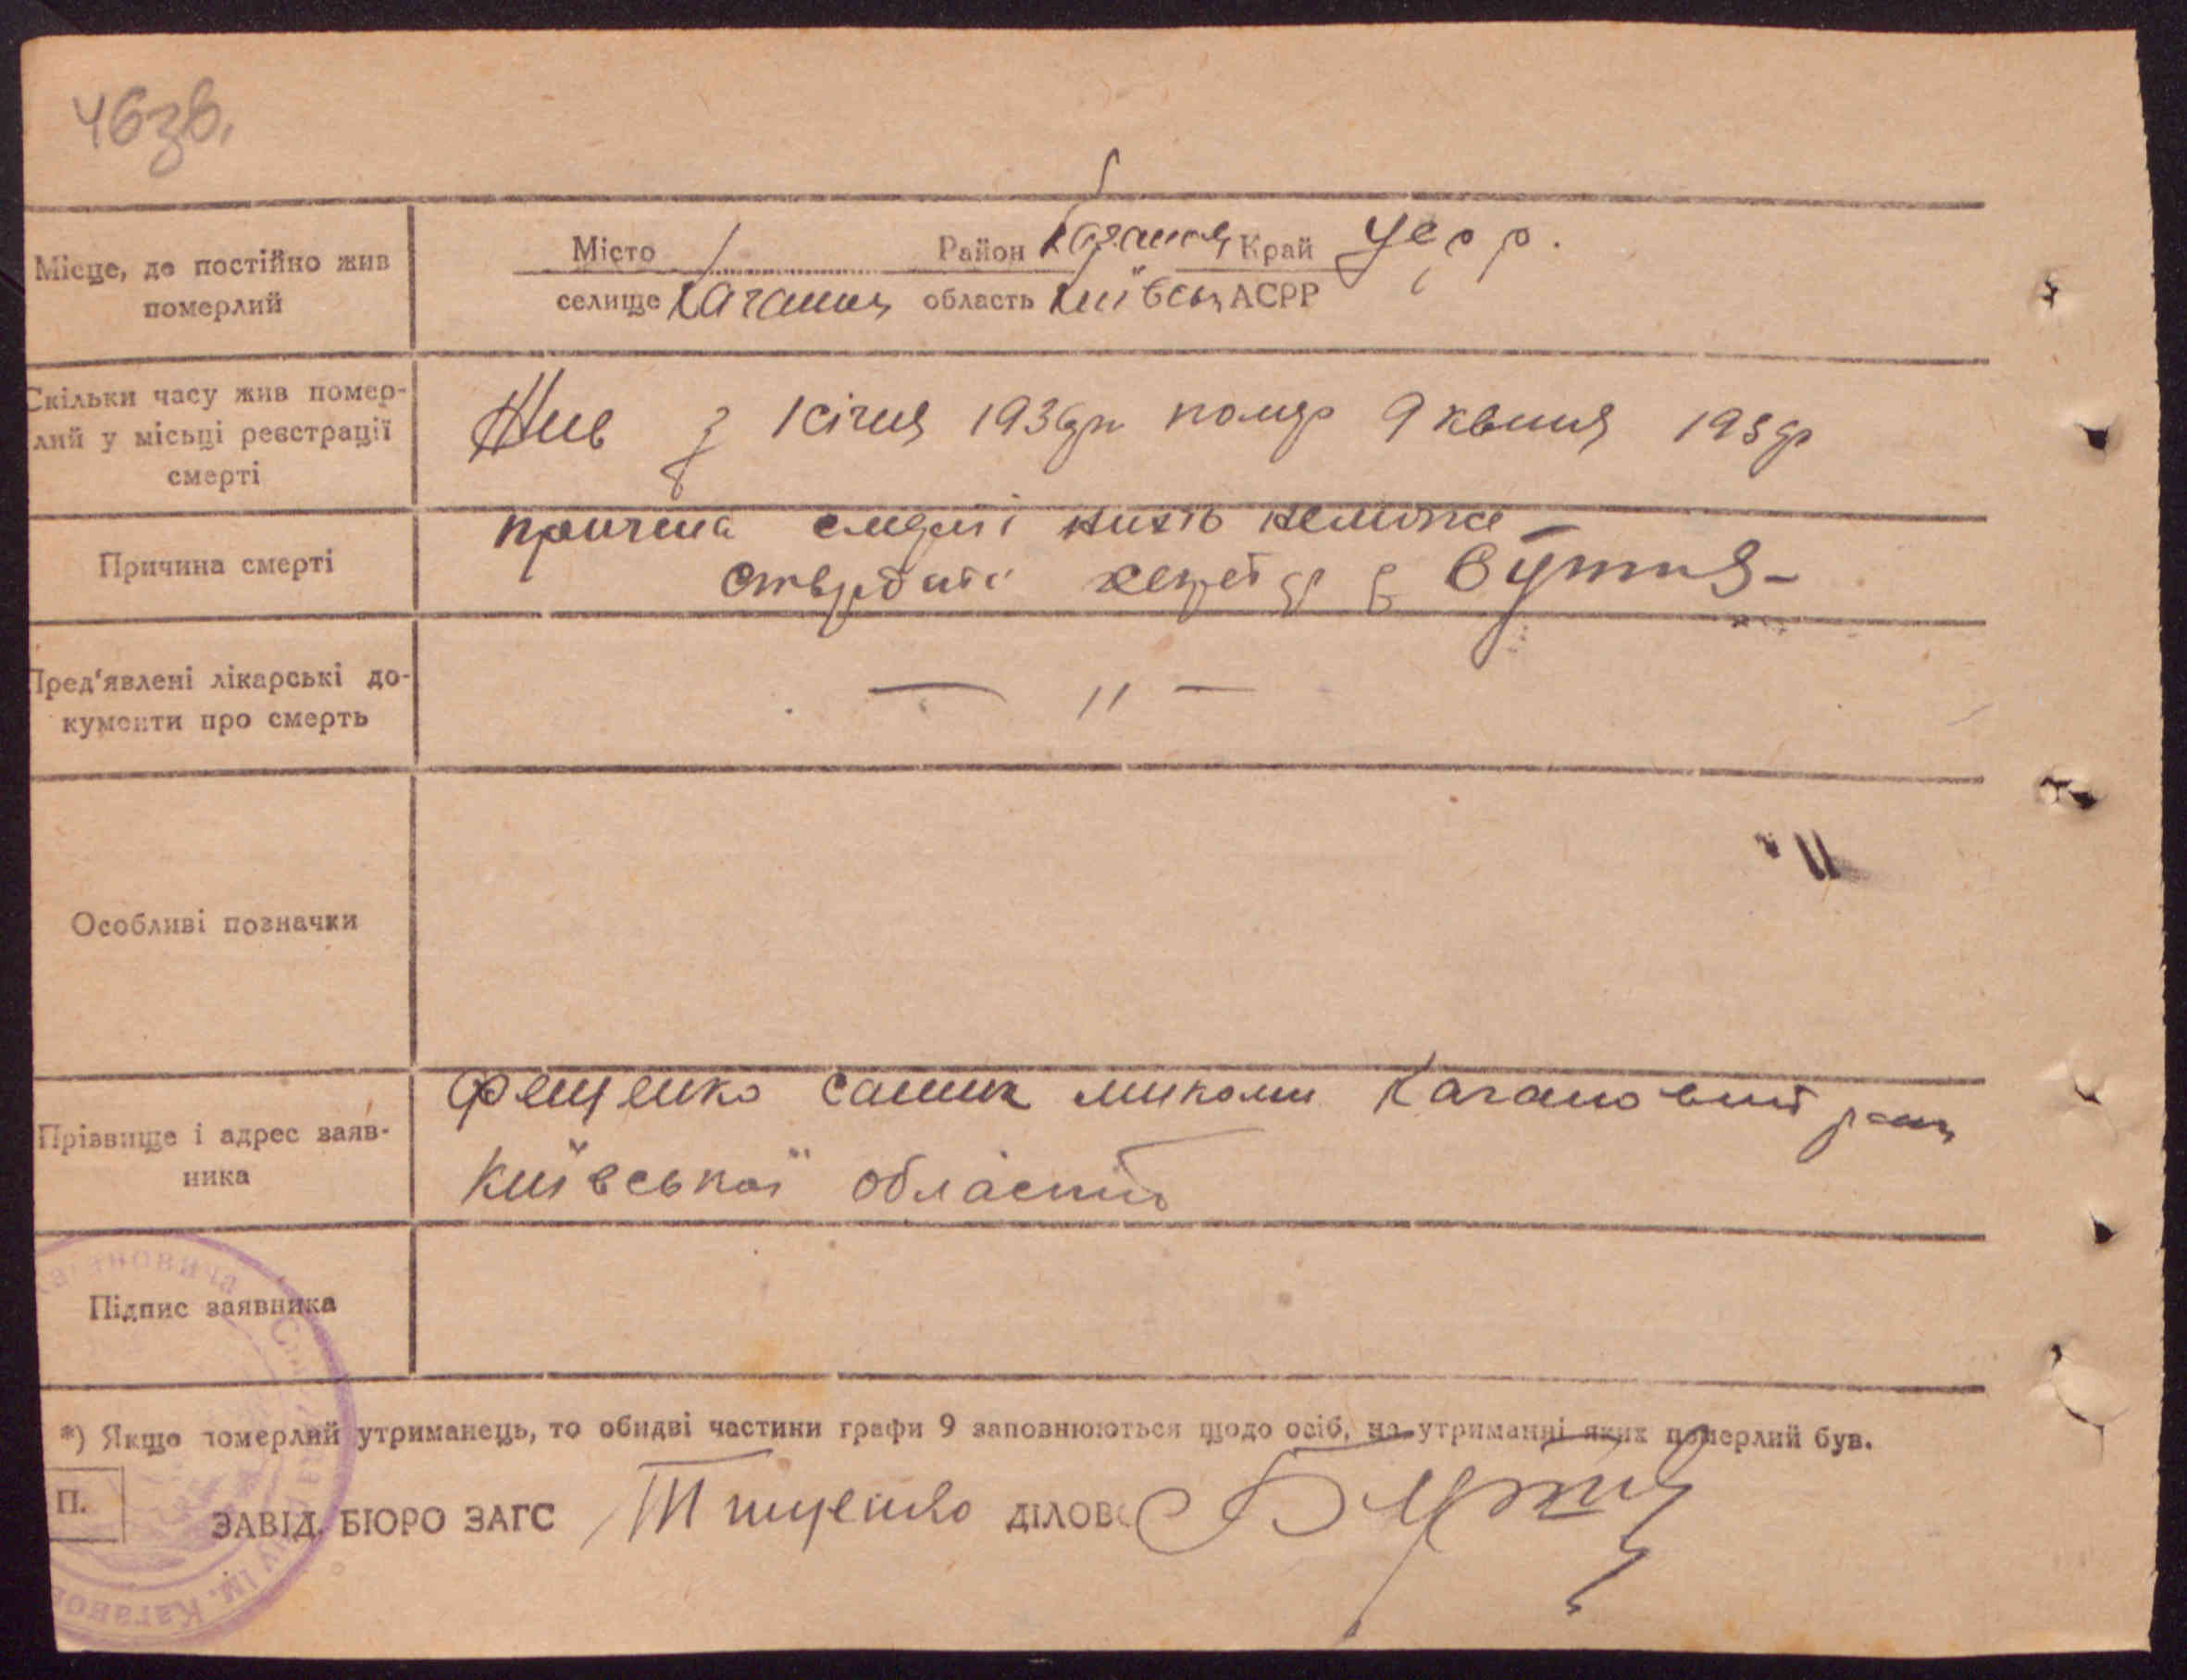 46зв.
Місце, де постійно жив
померлий
Місто Район Каганов Край УСРР.
селище Каганов область Київськ АСРР
Скільки часу жив помер-
лий у місьці реєстрації
смерті
Жив з 1 січня 1936р помер 9 квітня 193 р
Причина смерті
причина смерті ніхто неможе
ствердити
Пред'явлені лікарські до-
кументи про смерть
— " —
Особливі позначки
Прізвище і адрес заяв-
ника
Фещенко Микоми Кагановський район
Київської область
Підпис заявника
*) Якщо померлий утриманець, то обидві частини графи 9 заповнюються щодо осіб, на утриманні яких померлий був.
П.
ЗАВІД. БЮРО ЗАГС Тищенко ДІЛОВ
Кагановича
ім. Каганов